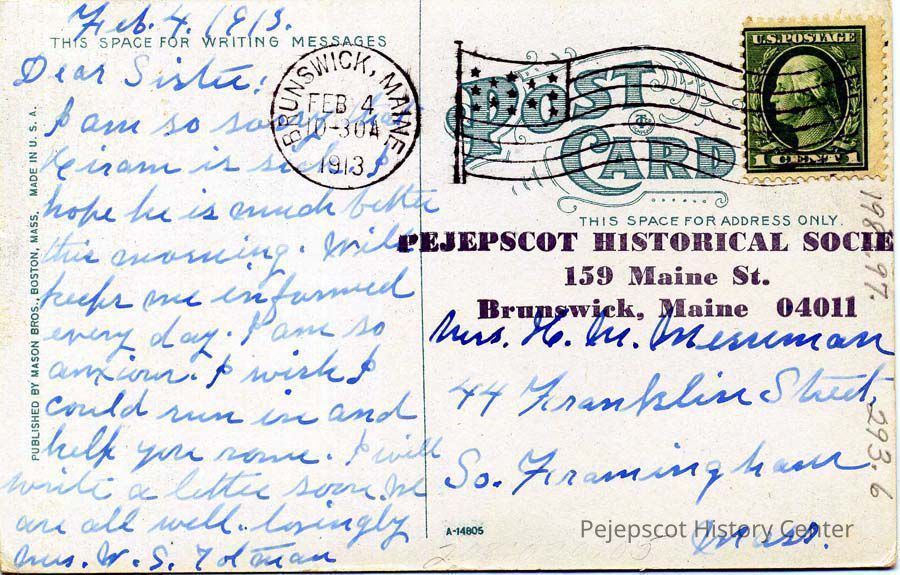 Feb. 4. 1913.
THIS SPACE FOR WRITING MESSAGES
Dear Sister:
I am so sorry that
Hiram is sick. I
hope he is much better
this morning. Will
keeps me informed
every day. I am so
anxious. I wish I
could run in and
help you some. I will
write a letter soon. We
are all well. lovingly
Mrs. W. S. Tolman
PUBLISHED BY MASON BROS., BOSTON, MASS. MADE IN U. S. A.
BRUNSWICK, MAINE
FEB 4
10-30A
1913
U.S. POSTAGE
1 CENT 1
POST
CARD
THIS SPACE FOR ADDRESS ONLY.
PEJEPSCOT HISTORICAL SOCIE
159 Maine St.
Brunswick, Maine 04011
Mrs. H. M. Merriman
44 Franklin Street,
So. Framingham
Mass.
A-14805
293.6
Pejepscot History Center